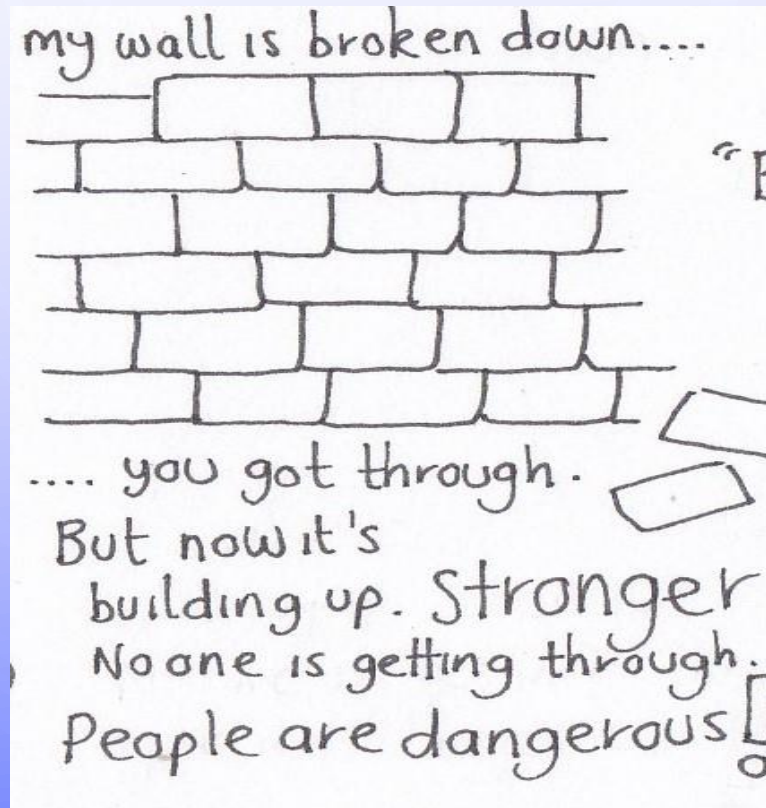 my wall is broken down....
.... you got through.
But now it's
building up. Stronger
No one is getting through.
People are dangerous